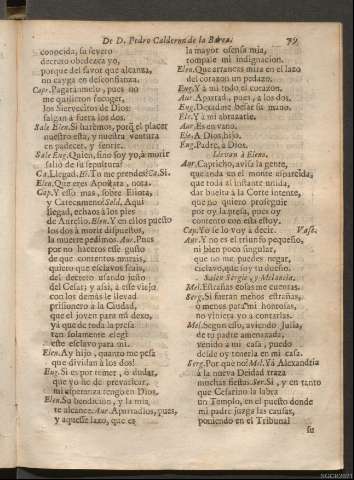 De D. Pedro Calderon de la Barca. 79
conocida, su severo
decreto obedezca yo,
porque del favor que alcança,
no cayga en desconfiança.
Cap. Pagaramelo, pues no
me quisieron focoger,
los Siervecitos de Dios:
salgan à fuera los dos.
Sale Elen. Si haremos, porq̃ el placer
nuestro està, y nuestra ventura
en padecer, y sentir.
Sale Eug. Quien, sino soy yo, à morir
saliò de su sepultura?
Ca. Llegad. El. Tu me prendes? Ca. Si.
Elen. Que eres Apostata, nota.
Cap. Y esso mas, sobre Eliota,
y Catecumeno? Sold. Aqui
llegad, echaos à los pies
de Aurelio. Elen. Y en ellos puesto
los dos à morir dispuestos,
la muerte pedimos. Aur. Pues
por no hazeros esse gusto
de que contentos murais,
quiero que esclavos seais,
del decreto usando justo
del Cesar; y assi, à esse viejo
con los demàs se llevad
prisionero à la Ciudad,
que el joven para mi dexo,
yà que de toda la presa
tan solamente elegì
este esclavo para mi.
Elen. Ay hijo, quanto me pesa
que dividan à los dos!
Eug. Si es por temer, ò dudar,
que yo he de prevaricar,
mi esperança tengo en Dios.
Elen. Su bendicion, y la mia,
te alcance. Aur. Apartadlos, pues,
y aquesse lazo, que es
la mayor ofensa mia,
rompale mi indignacion.
Elen. Que arrancas mira en el lazo
del coraçon un pedazo.
Eug. Y à mi todo el coraçon.
Aur. Apartad, pues, à los dos.
Eug. Dexadme besar su mano.
Ele. Y à mi abraçarle.
Aur. Es en vano.
Ele. A Dios, hijo.
Eug. Padre, à Dios.
Llevan à Eleno.
Aur. Capricho, avisa la gente,
que anda en el monte esparcida,
que toda al instante unida,
dar buelta à la Corte intente,
que no quiero proseguir
por oy la presa, pues oy
contento con esta estoy.
Cap. Yo se lo voy à decir. Vase.
Aur. Y no es el triunfo pequeño,
ni bien poco singular,
que no me puedes negar,
esclavo, que soy tu dueño.
Salen Sergio, y Melancia.
Mel. Estrañas cosas me cuentas.
Serg. Si fueran menos estrañas,
ò menos para mi honrosas,
no viniera yo à contarlas.
Mel. Segun esso, aviendo Julia,
de tu padre amenazada,
venido à mi casa, puedo
desde oy tenerla en mi casa.
Serg. Por que no? Mel. Yà Alexandria
à la nueva Deidad traza
muchas fiestas. Ser. Si, y en tanto
que Cesarino la labra
un Templo, en el puesto donde
mi padre juzga las causas,
poniendo en el Tribunal
su